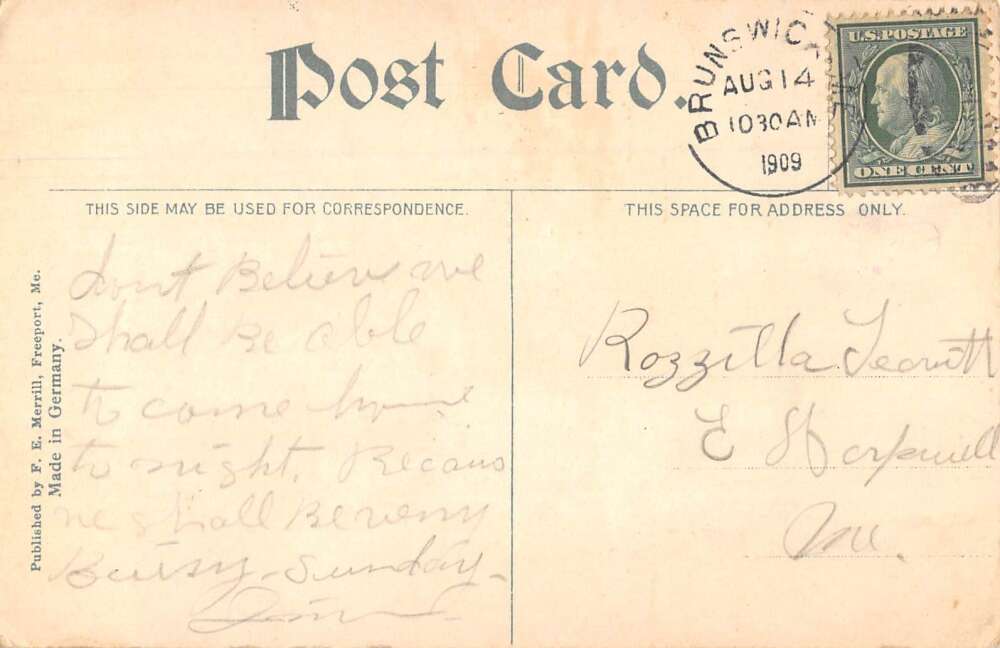 Post Card.
BRUNSWICK
AUG 14
1030AM
1909
U.S. POSTAGE
ONE CENT
THIS SIDE MAY BE USED FOR CORRESPONDENCE.
THIS SPACE FOR ADDRESS ONLY.
Published by F. E. Merrill, Freeport, Me.
Made in Germany.
dont Believe we
shall Be able
to come home
to night. Becaus
we shall Be verry
Buisy - Sunday -
Rozzilla
E Harpswell
Me.